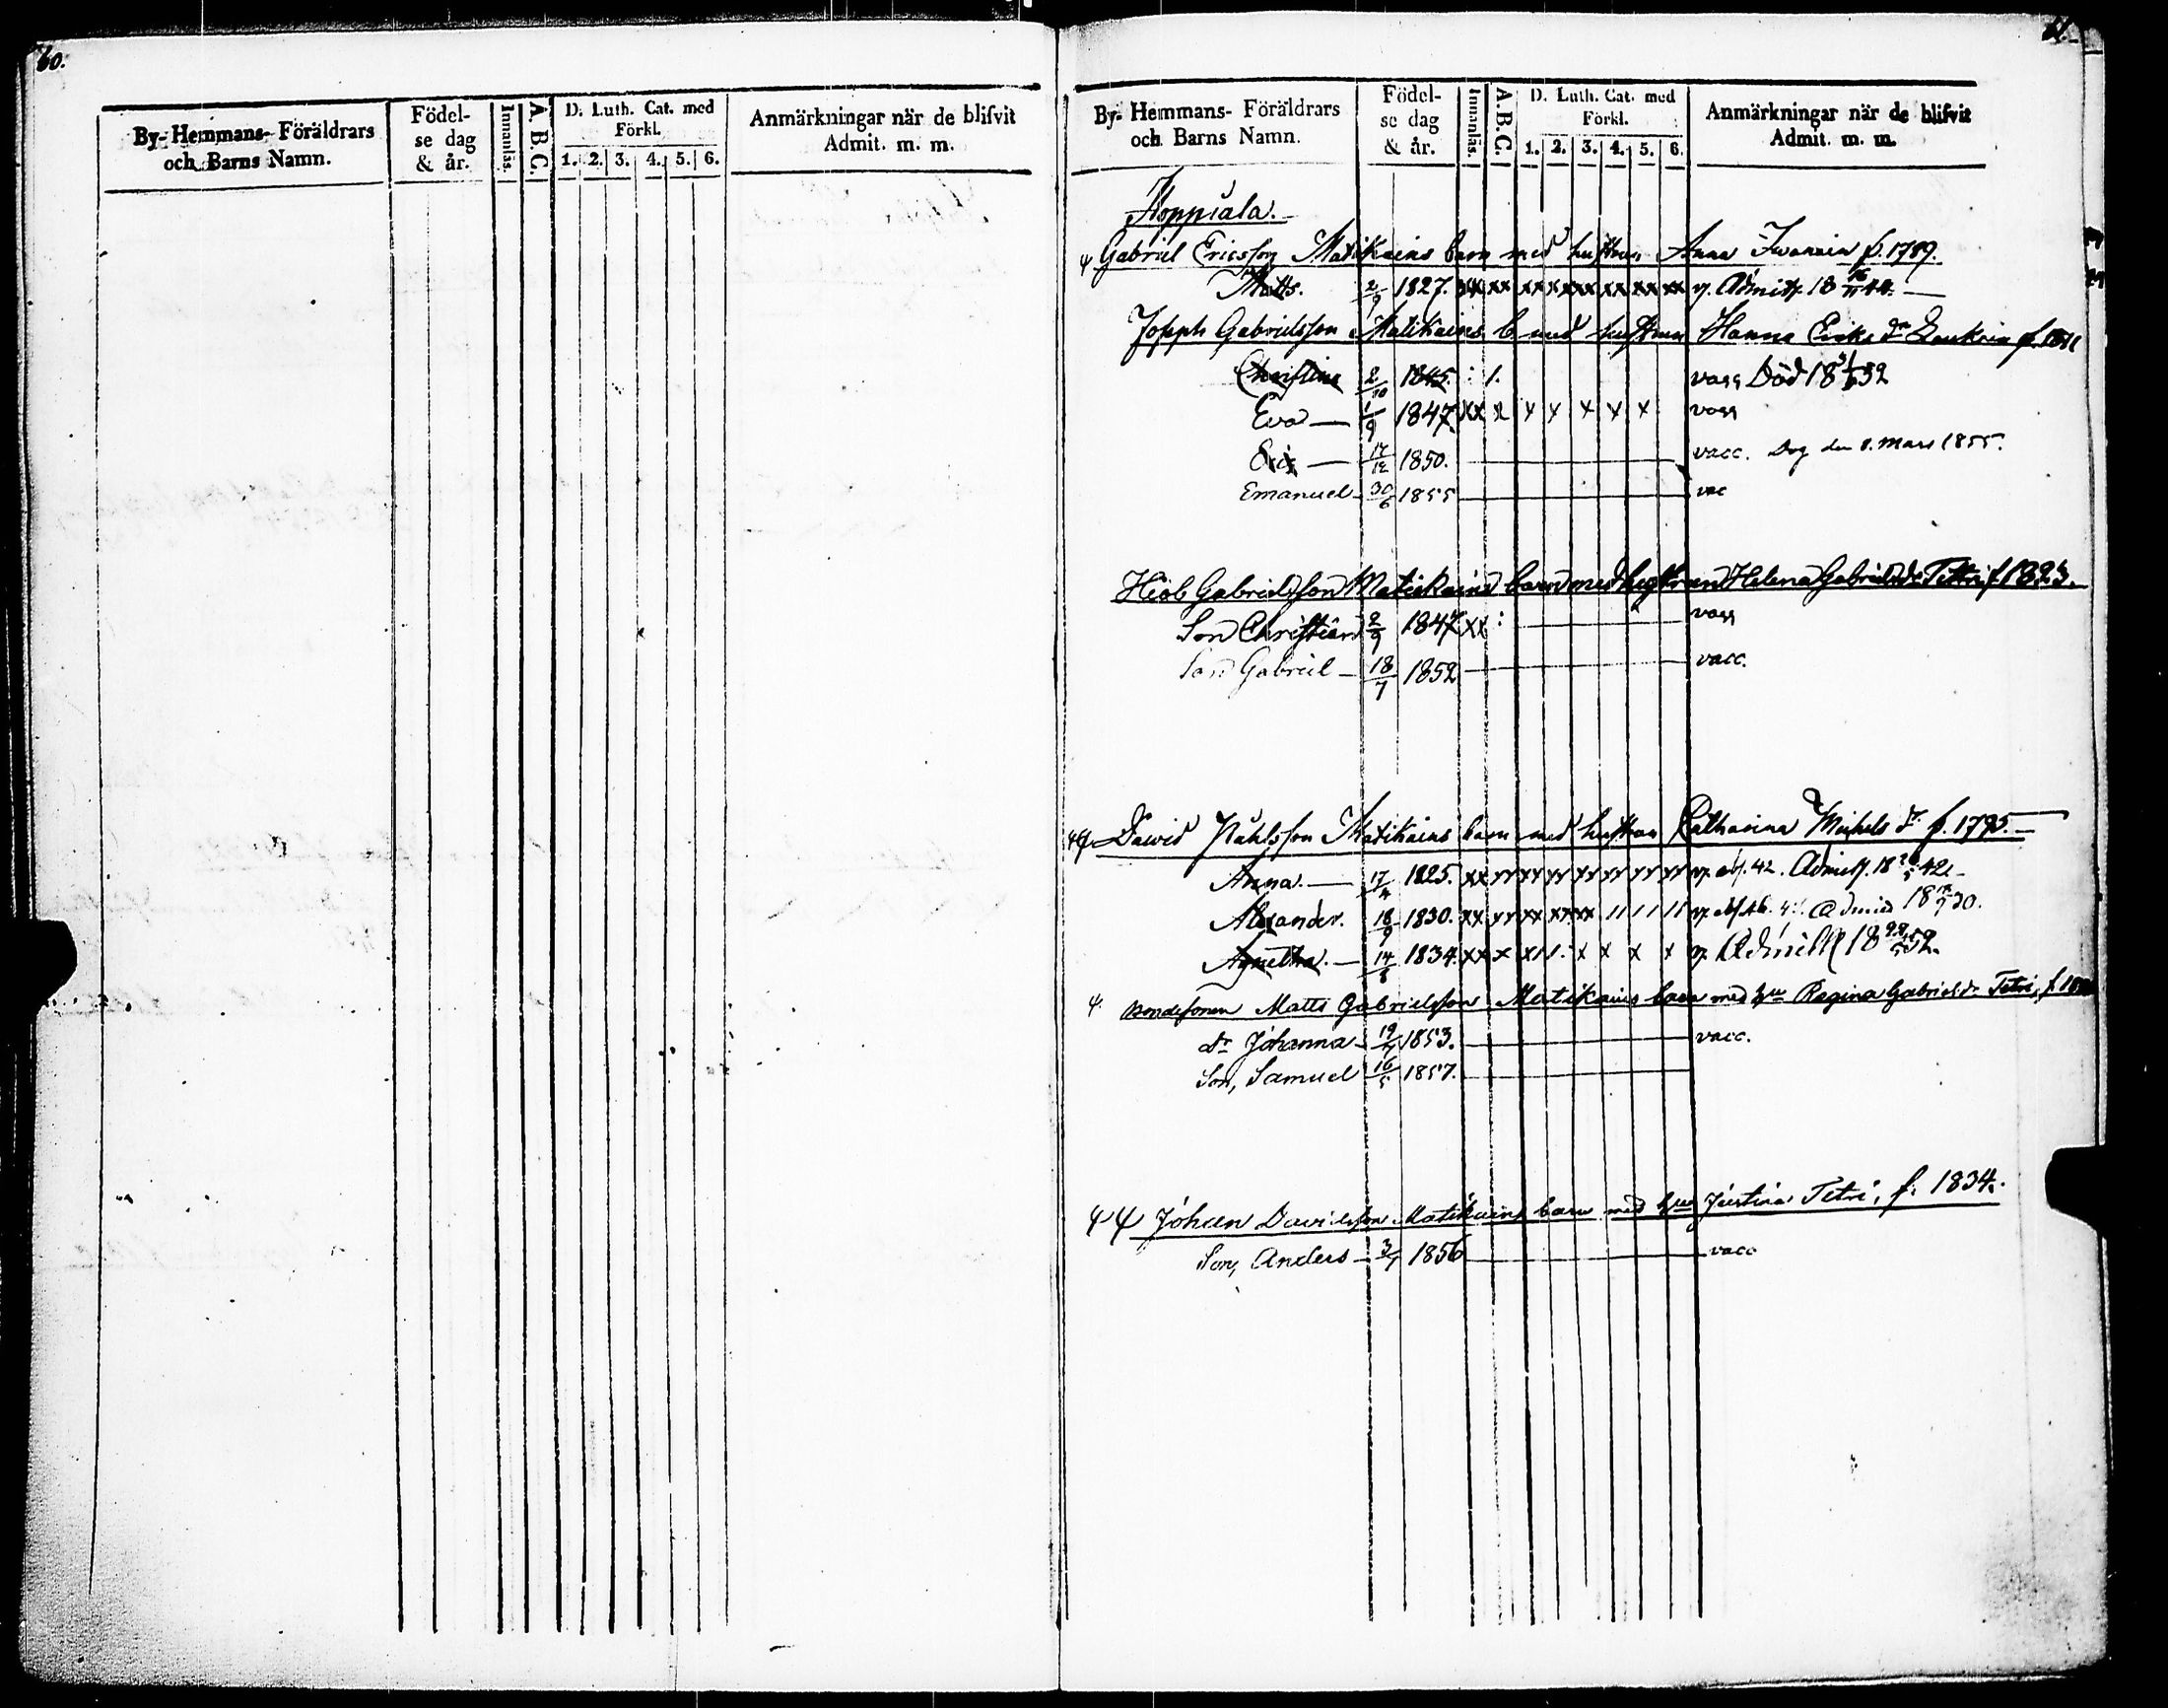 60.
By- Hemmans- Föräldrars och Barns Namn.
Födelse dag & år.
Innanläs.
A.B.C.
D. Luth. Cat. med Förkl.
1. 2. 3. 4. 5. 6.
Anmärkningar när de blifvit Admit. m. m.
61.
By- Hemmans- Föräldrars och Barns Namn.
Födelse dag & år.
Innanläs.
A.B.C.
D. Luth. Cat. med Förkl.
1. 2. 3. 4. 5. 6.
Anmärkningar när de blifvit Admit. m. m.
Hoppiala.
Gabriel Ericsson Matikains barn med hustrun Anna f. 1789.
Matts. 2/9 1827. xx xx xx xx xx xx xx xx v. Admitt. 18 16/11 44.
Joseph Gabrielsson Matikains b. med hustrun Hanna Eriks dr f. 1811
Christina 2/10 1845. : 1. vacc Död 18 52
Eva 1/9 1847. xx x x x x x x vacc
Eric 17/12 1850. vacc. Dog den 8. Mars 1855.
Emanuel 30/6 1855 vac
Hiob Gabrielsson Matikains barn med hustrun Helena Gabrielsdr Tettri f 1823.
Son Christian 2/9 1847 xx : vacc
Son Gabriel 18/7 1852 vacc.
David Påhlsson Matikains barn med hustrun Catharina Michels dr f. 1795.
Anna. 17/4 1825. xx v. abs. 42. Admitt. 18 42
Alexander. 18/9 1830. xx v. Admit 18
Agnetha. 14/8 1834. xx x x x x x v. Admitt 18 52.
Bondesonen Matts Gabrielsson Matikains barn med hun Regina Gabrielsdr Tetri, f.
dr Johanna 19/4 1853. vacc.
Son, Samuel 16/5 1857.
Johan Davidsson Matikains barn med hun Justina Tetri, f. 1834.
Son, Anders 3/7 1856 vacc